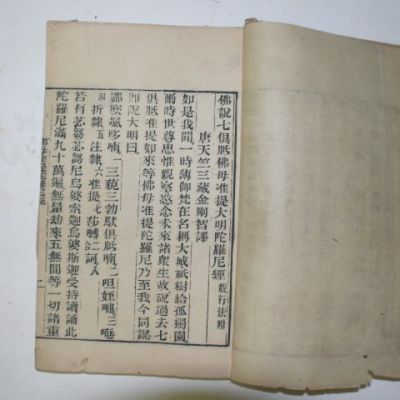 佛說七俱胝佛母准提大明陀羅尼經 觀行法附
唐天竺三藏金剛智譯
如是我聞一時薄伽梵在名稱大城祇樹給孤獨園
爾時世尊思惟觀察愍念未來諸衆生故說過去七
俱胝准提如來等佛母准提陀羅尼乃至我今同說
師說大明曰
娜麼颯哆喃一三藐三勃馱俱胝喃二呾姪嚇三唵
四折隸五注隸六准提七莎嚩二訶八
若有苾芻苾芻尼烏婆索迦烏婆斯迦受持讀誦此
陀羅尼滿九十萬遍無量劫來五無間等一切諸重